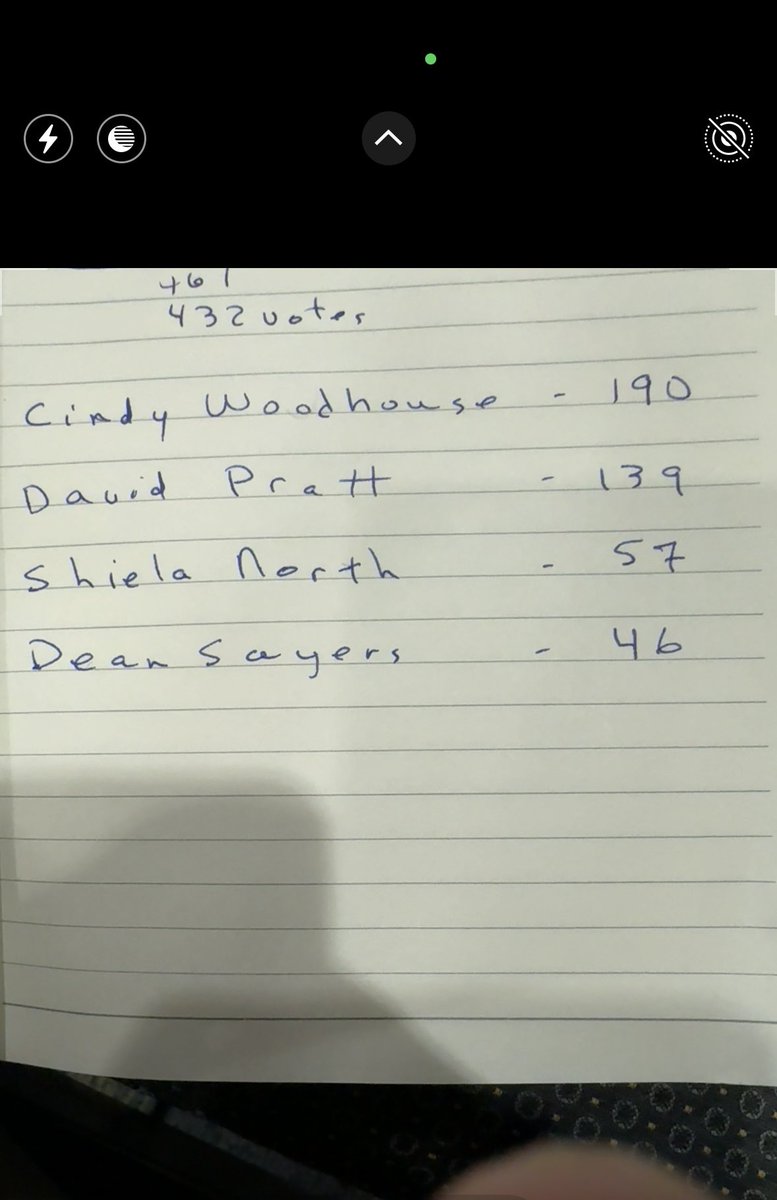 432 votes
Cindy Woodhouse - 190
David Pratt - 139
Shiela North - 57
Dean Sayers - 46